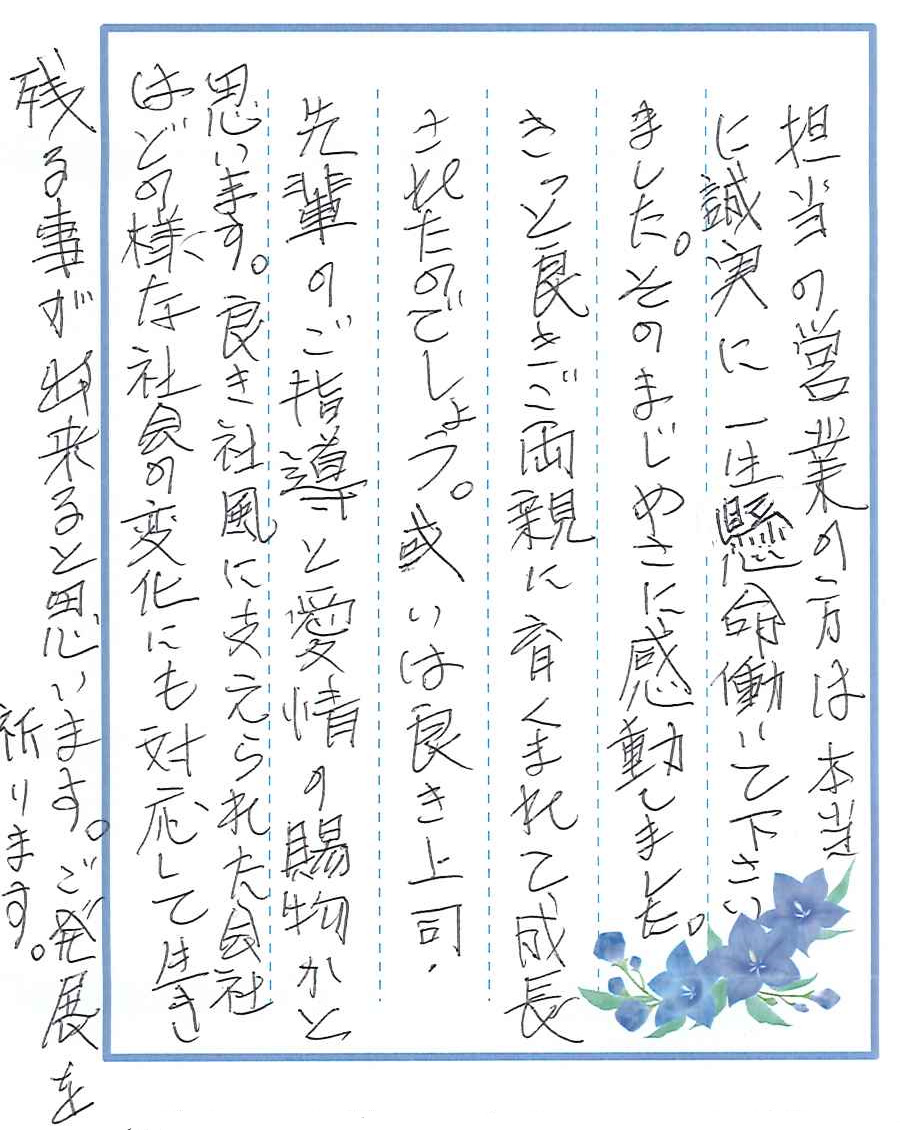 担当の営業の方は本当
に誠実に一生懸命働いて下さい
ました。そのまじめさに感動しました。
きっと良きご両親に育くまれて成長
されたのでしょう。或いは良き上司・
先輩のご指導と愛情の賜物かと
思います。良き社風に支えられた会社
はどの様な社会の変化にも対応して生き
残る事が出来ると思います。ご発展を
祈ります。